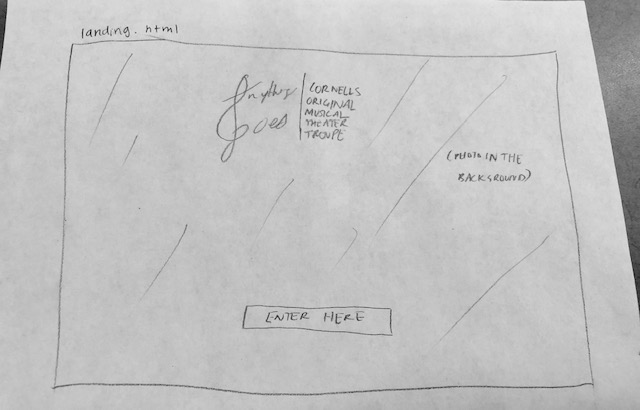 landing.html
Anything
Goes
CORNELLS
ORIGINAL
MUSICAL
THEATER
TROUPE
(PHOTO IN THE
BACKGROUND)
ENTER HERE